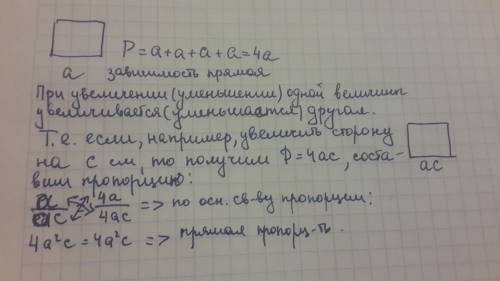 P = a + a + a + a = 4a
a зависимость прямая
При увеличении (уменьшении) одной величины
увеличивается (уменьшается) другая.
Т.е. если, например, увеличить сторону
на c см, то получим P = 4ac, соста-
вим пропорцию:
ac
a/ac 4a/4ac => по осн. св-ву пропорции:
4a²c = 4a²c => прямая пропорц-ть.